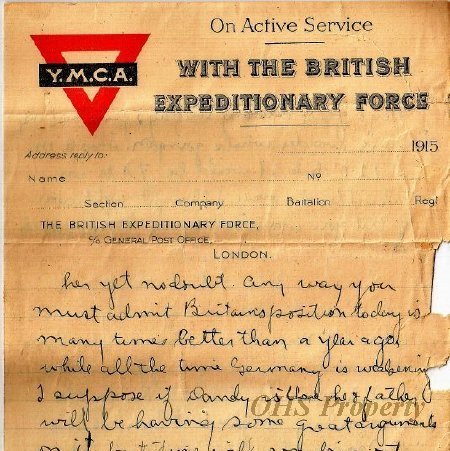 On Active Service
Y.M.C.A.
WITH THE BRITISH
EXPEDITIONARY FORCE
1915
Address reply to:
Name Nº
Section Company Battalion Regt
THE BRITISH EXPEDITIONARY FORCE,
c/o GENERAL POST OFFICE,
LONDON.
her yet no doubt. Any way you
must admit Britains position today is
many times better than a year ago
while all the time Germany is
I suppose if Dandy is father
will be having some great arguments
OHS Property